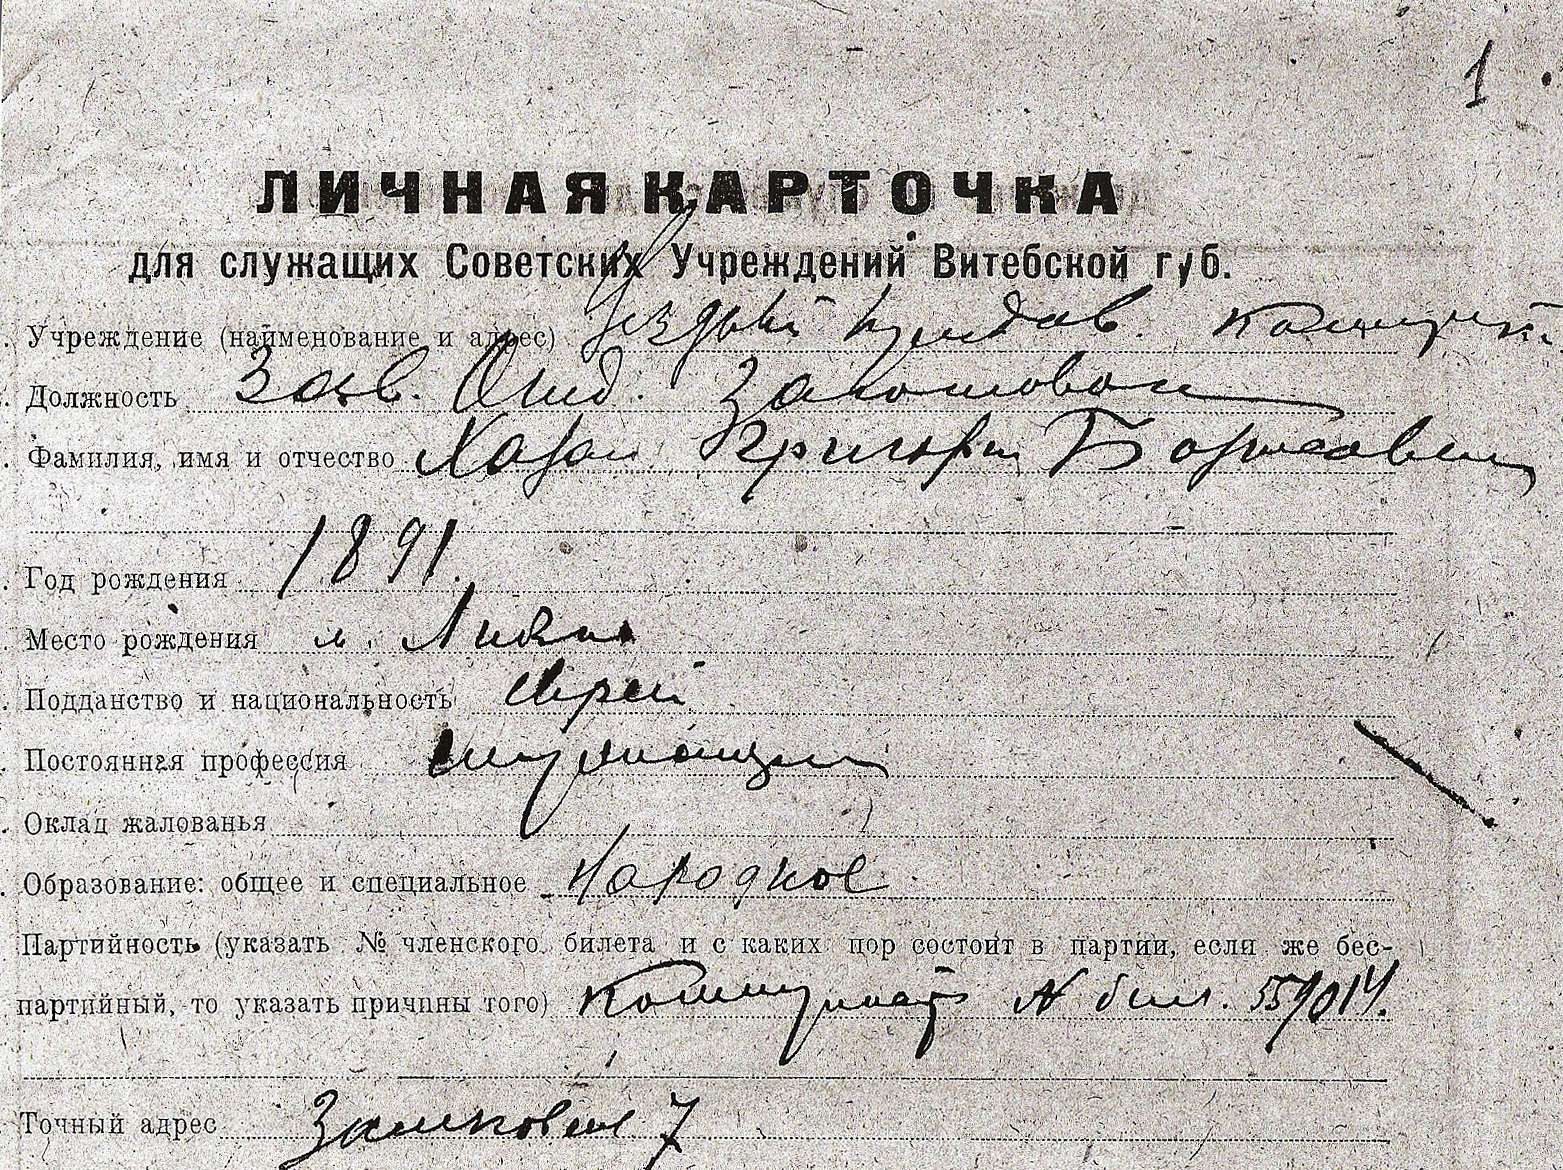 1
ЛИЧНАЯ КАРТОЧКА
для служащих Советских Учреждений Витебской губ.
Учреждение (наименование и адрес) Уездный
Должность Зав. Отд.
Фамилия, имя и отчество Хазан Григорий Борисович
Год рождения 1891.
Место рождения м.
Подданство и национальность еврей
Постоянная профессия
Оклад жалованья
Образование: общее и специальное Народное
Партийность (указать № членского билета и с каких пор состоит в партии, если же бес-
партийный, то указать причины того) Коммунист № бил. 557014.
Точный адрес Замковая 7